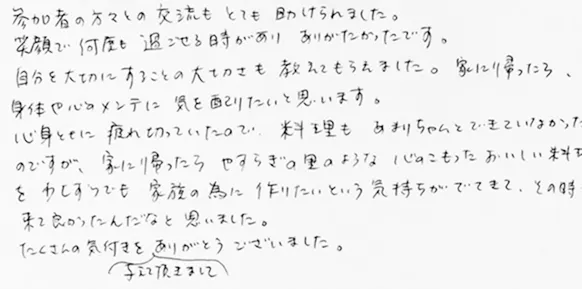 参加者の方々との交流もとても助けられました。
笑顔で何度も過ごせる時があり ありがたかったです。
自分を大切にすることの大切さも教えてもらえました。家に帰ったら、
身体や心のメンテに気を配りたいと思います。
心身ともに疲れ切っていたので、料理もあまりちゃんとできていなかった
のですが、家に帰ったら やすらぎの里のような 心のこもった おいしい料
を少しずつでも 家族の為に 作りたいという気持ちがでてきて、その時
来て良かったんだなと思いました。
たくさんの気付きをありがとうございました。
与えて頂きまして